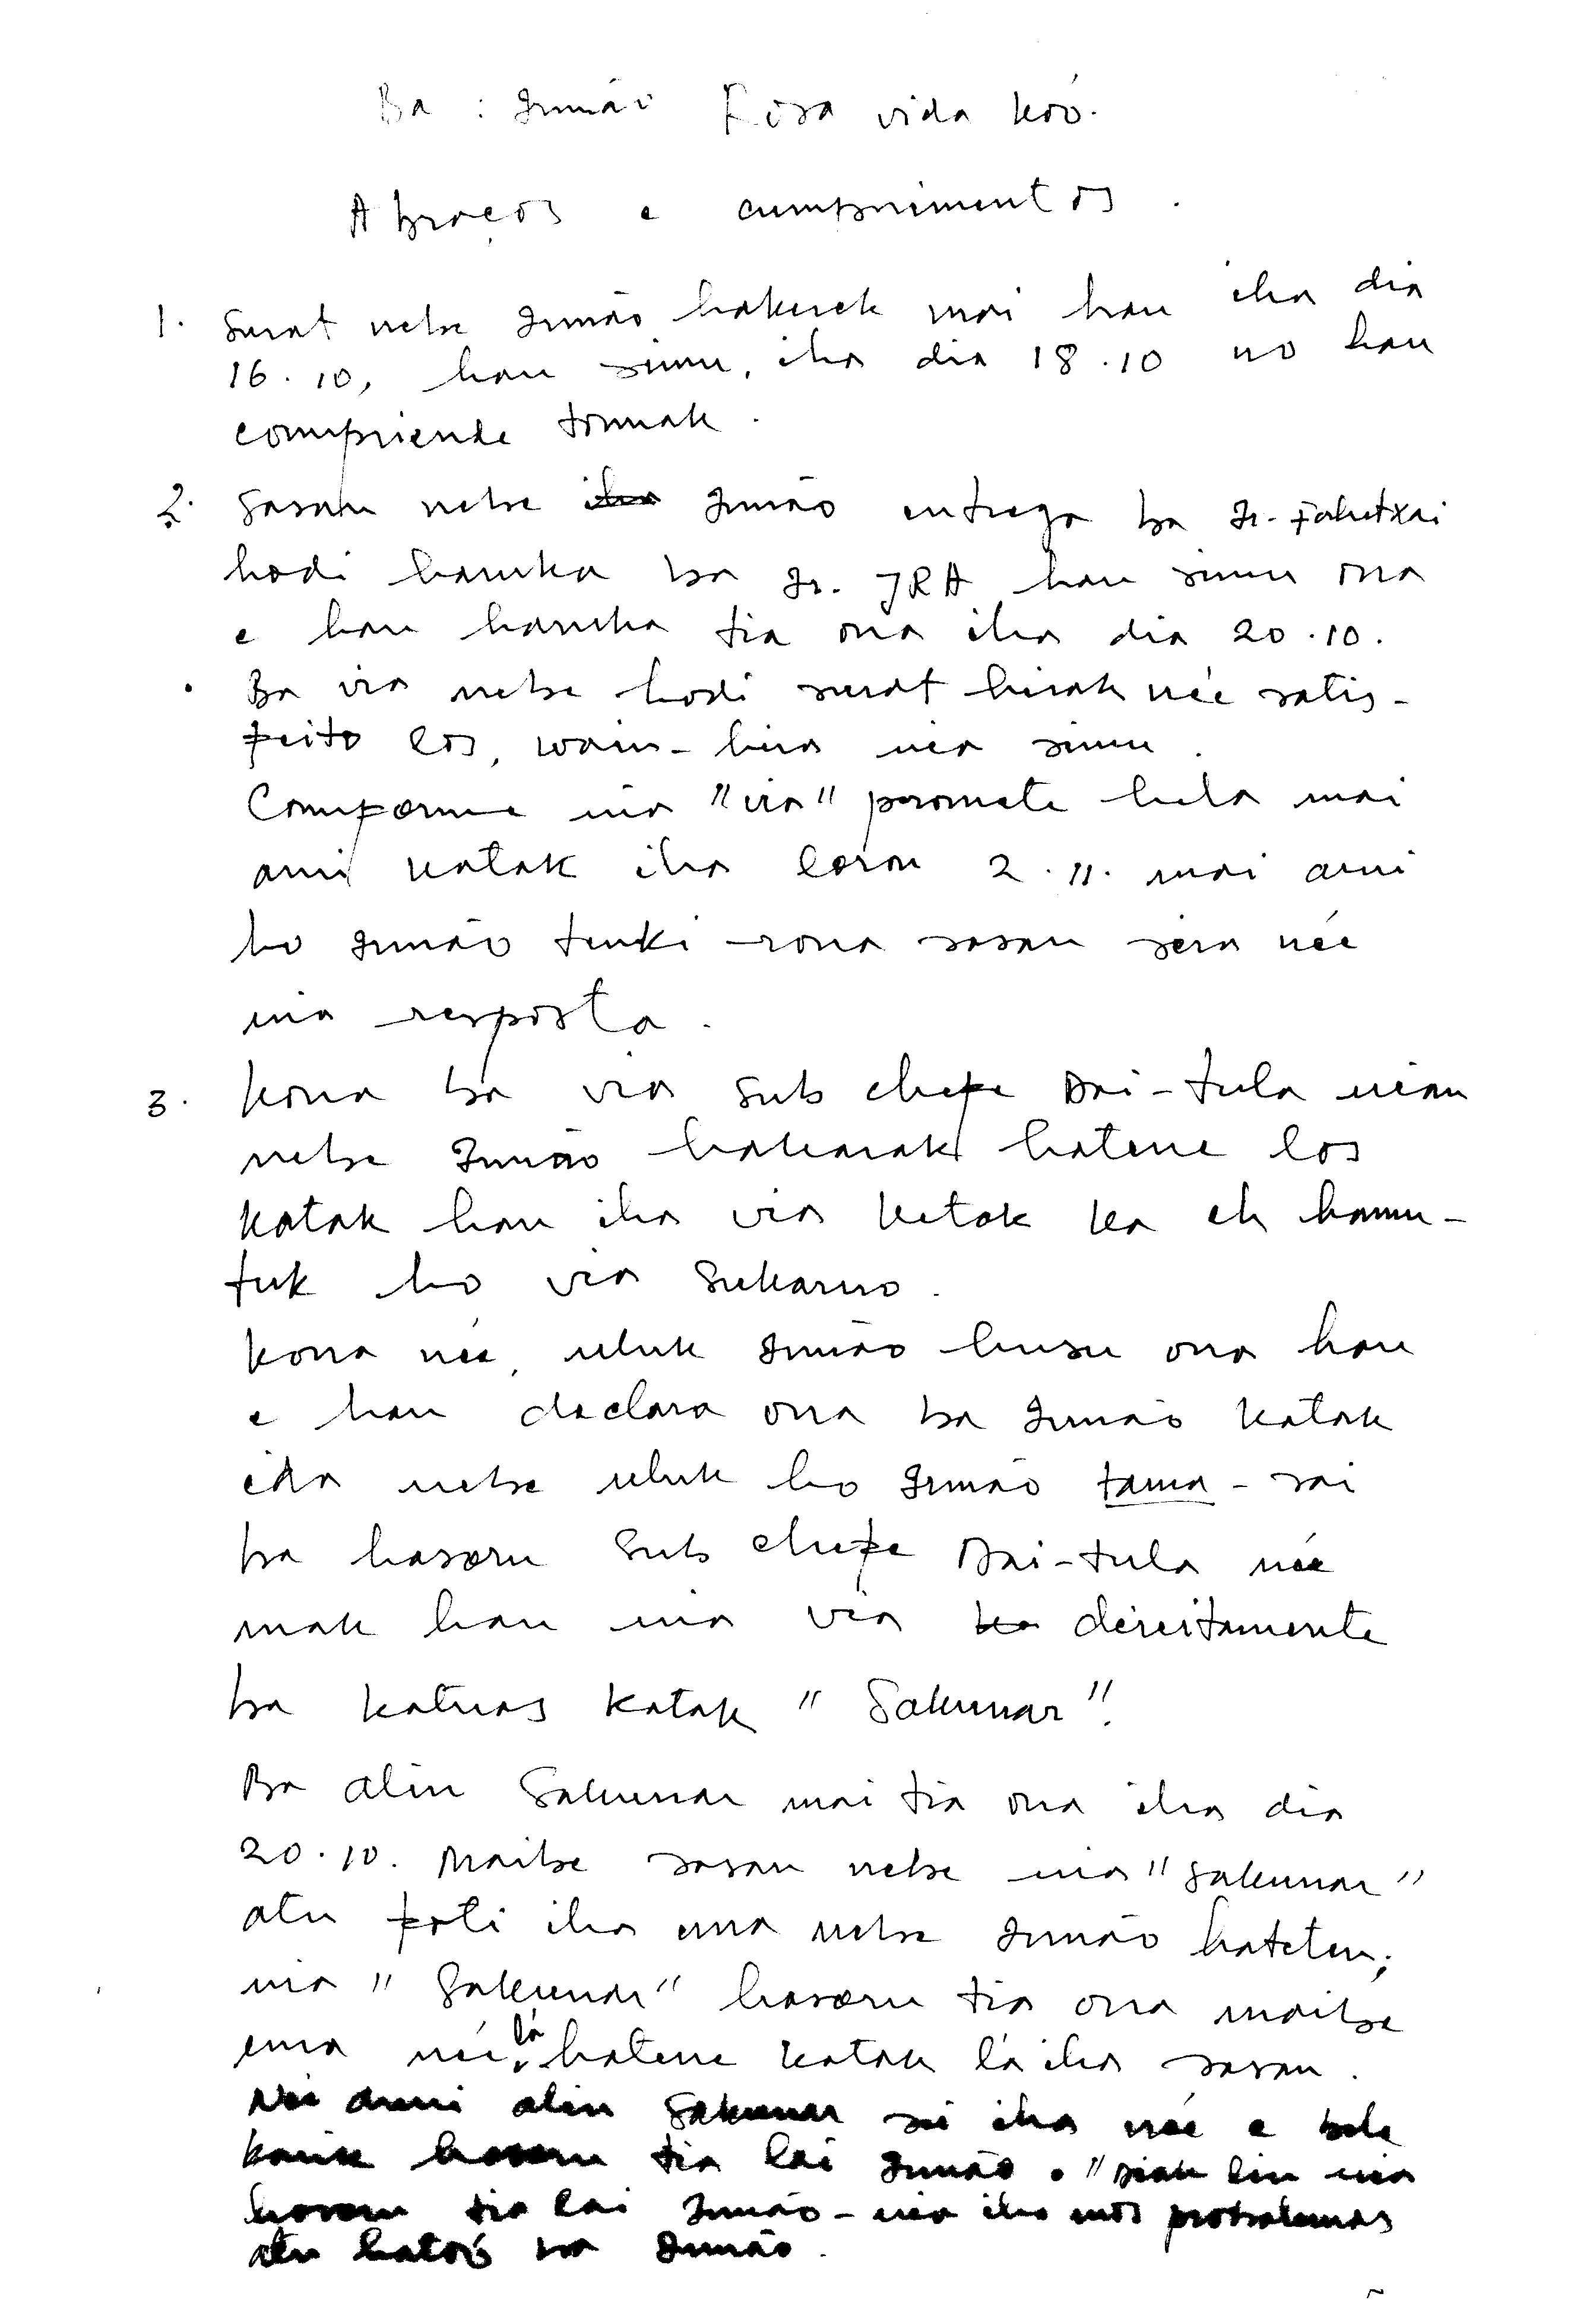 Ba : Irmão Rosa vida koó.
Abraços e cumprimentos.
1. Surat nebe Irmão hakerek mai hau iha dia
16.10, hau simu, iha dia 18.10 no hau
compriende tomak.
2. Sasan nebe Irmão entrega ba Ir. Fahetxai
hodi haruka ba Ir. JRA hau simu ona
e hau haruka tia ona iha dia 20.10.
Ba via nebe hodi surat hirak neé satis-
feito los, wain-hira nia simu.
Comforme nia "via" promete hela mai
ami katak iha loron 2.11. mai ami
ho Irmão tenki rona sasan sira neé
nia resposta.
3. kona ba via Sub chefe Dai-tula nian
nebe Irmão hakarak hatene los
katak hau iha via ketak ka eh hamu-
tuk ho via Sukarno.
kona neé, uluk Irmão husu ona hau
e hau declara ona ba Irmão katak
ida nebe uluk ho Irmão tama-sai
ba hasoru Sub chefe Dai-tula neé
mak hau nia via direitamente
ba katuas katak "Sakunar".
Ba alin Sakunar mai tia ona iha dia
20.10. Maibe sasan nebe nia "Sakunar"
atu foti iha ema nebe Irmão hateten;
nia "Sakunar" hasoru tia ona maibe
ema neé lá hatene katak lá iha sasan.
Neé duni alin Sakunar sei iha neé e bele
karik hasoru tia lai Irmão. "Diak liu nia
hasoru tia lai Irmão-nia iha mós probalemas
atu ható ba Irmão.